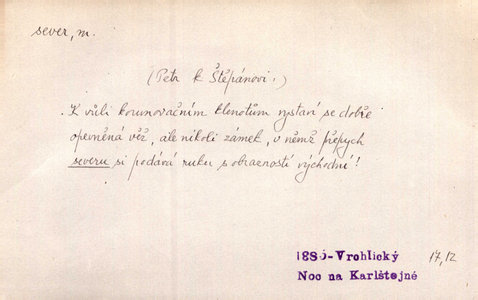 sever, m.
(Petr k Štěpánovi:)
K vůli korunovačním klenotům vystaví se dobře
opevněná věž, ale nikoli zámek, v němž přepych
severu si podává ruku s obrazností východní!
188 -Vrchlický 17,12
Noc na Karlštejně